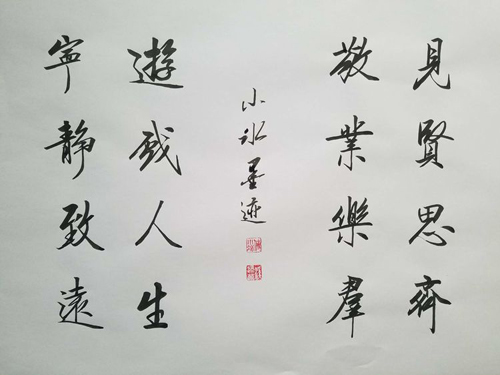 見賢思齊
敬業樂羣
小冰墨迹
遊戏人生
寧静致遠